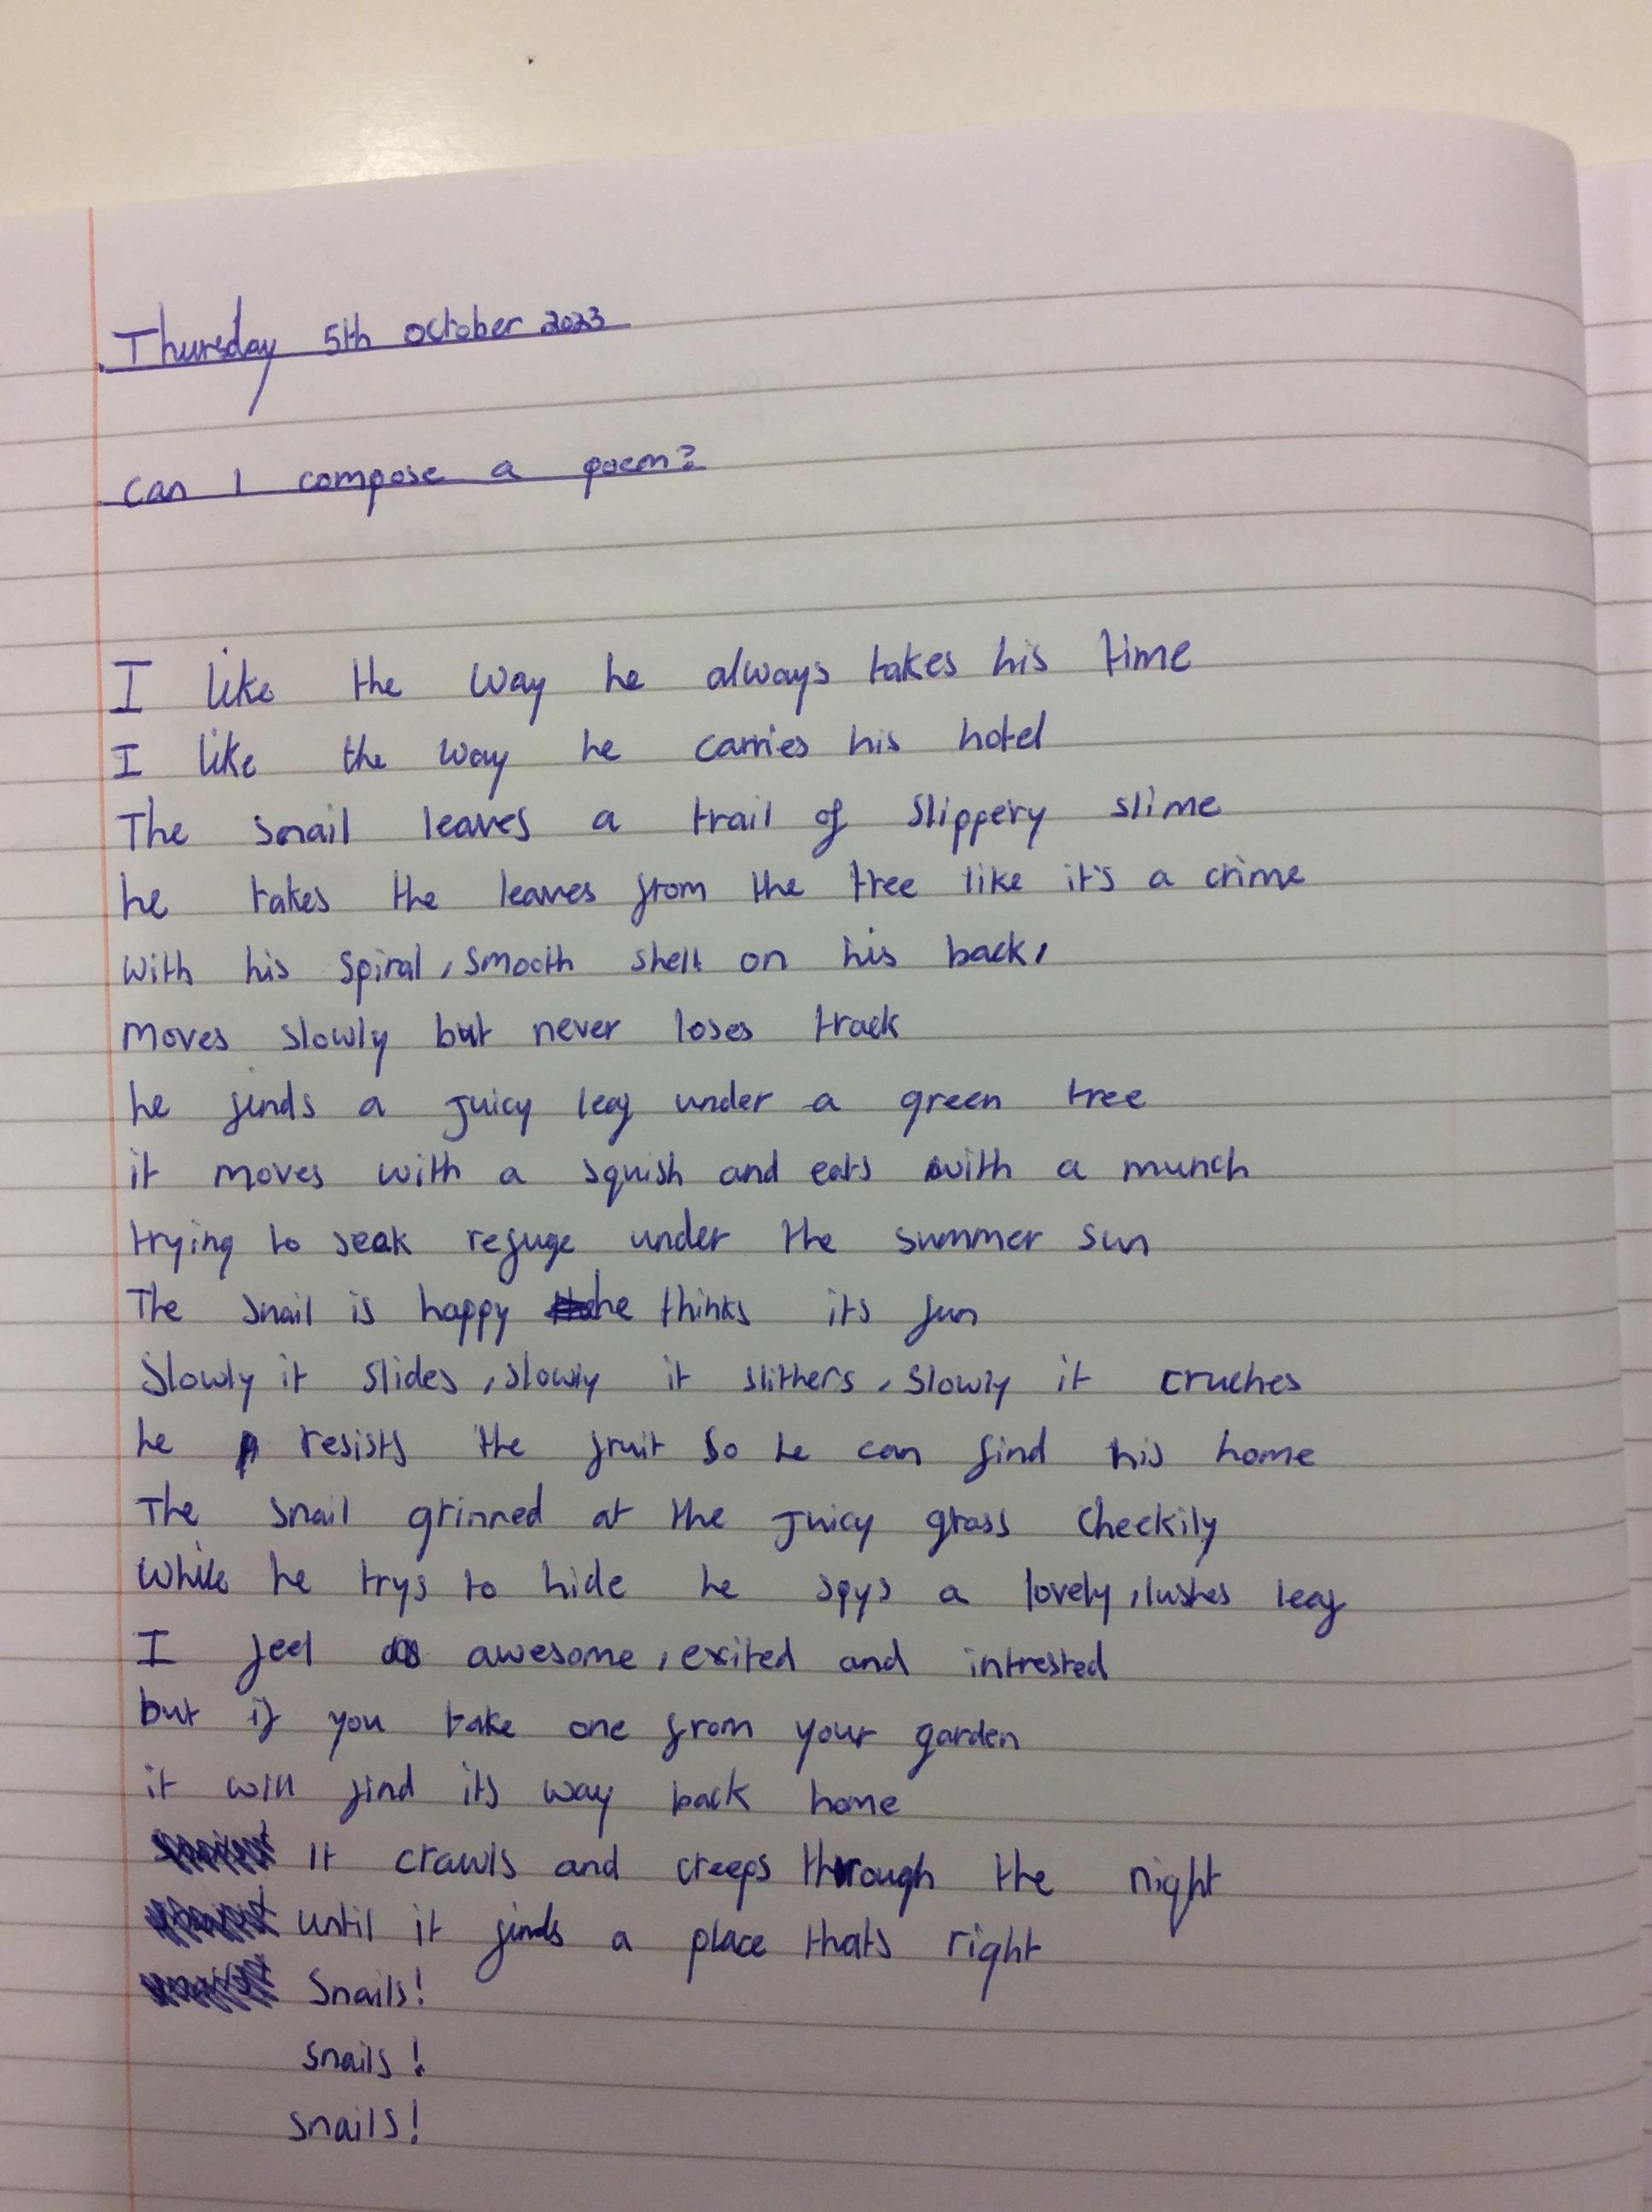 Thursday 5th october 2023
Can I compose a poem?
I like the way he always takes his time
I like the way he carries his hotel
The snail leaves a trail of slippery slime
he takes the leaves from the tree like it's a crime
with his spiral, smooth shell on his back,
moves slowly but never loses track
he finds a juicy leaf under a green tree
it moves with a squish and eats with a munch
trying to seak refuge under the summer sun
The snail is happy he thinks its fun
Slowly it slides, slowly it slithers, slowly it cruches
he resists the fruit so he can find his home
The snail grinned at the juicy grass cheekily
While he trys to hide he spys a lovely, lushes leaf
I feel awesome, exited and intrested
but if you take one from your garden
it will find its way back home
It crawls and creeps through the night
until it finds a place thats right
Snails!
Snails!
Snails!